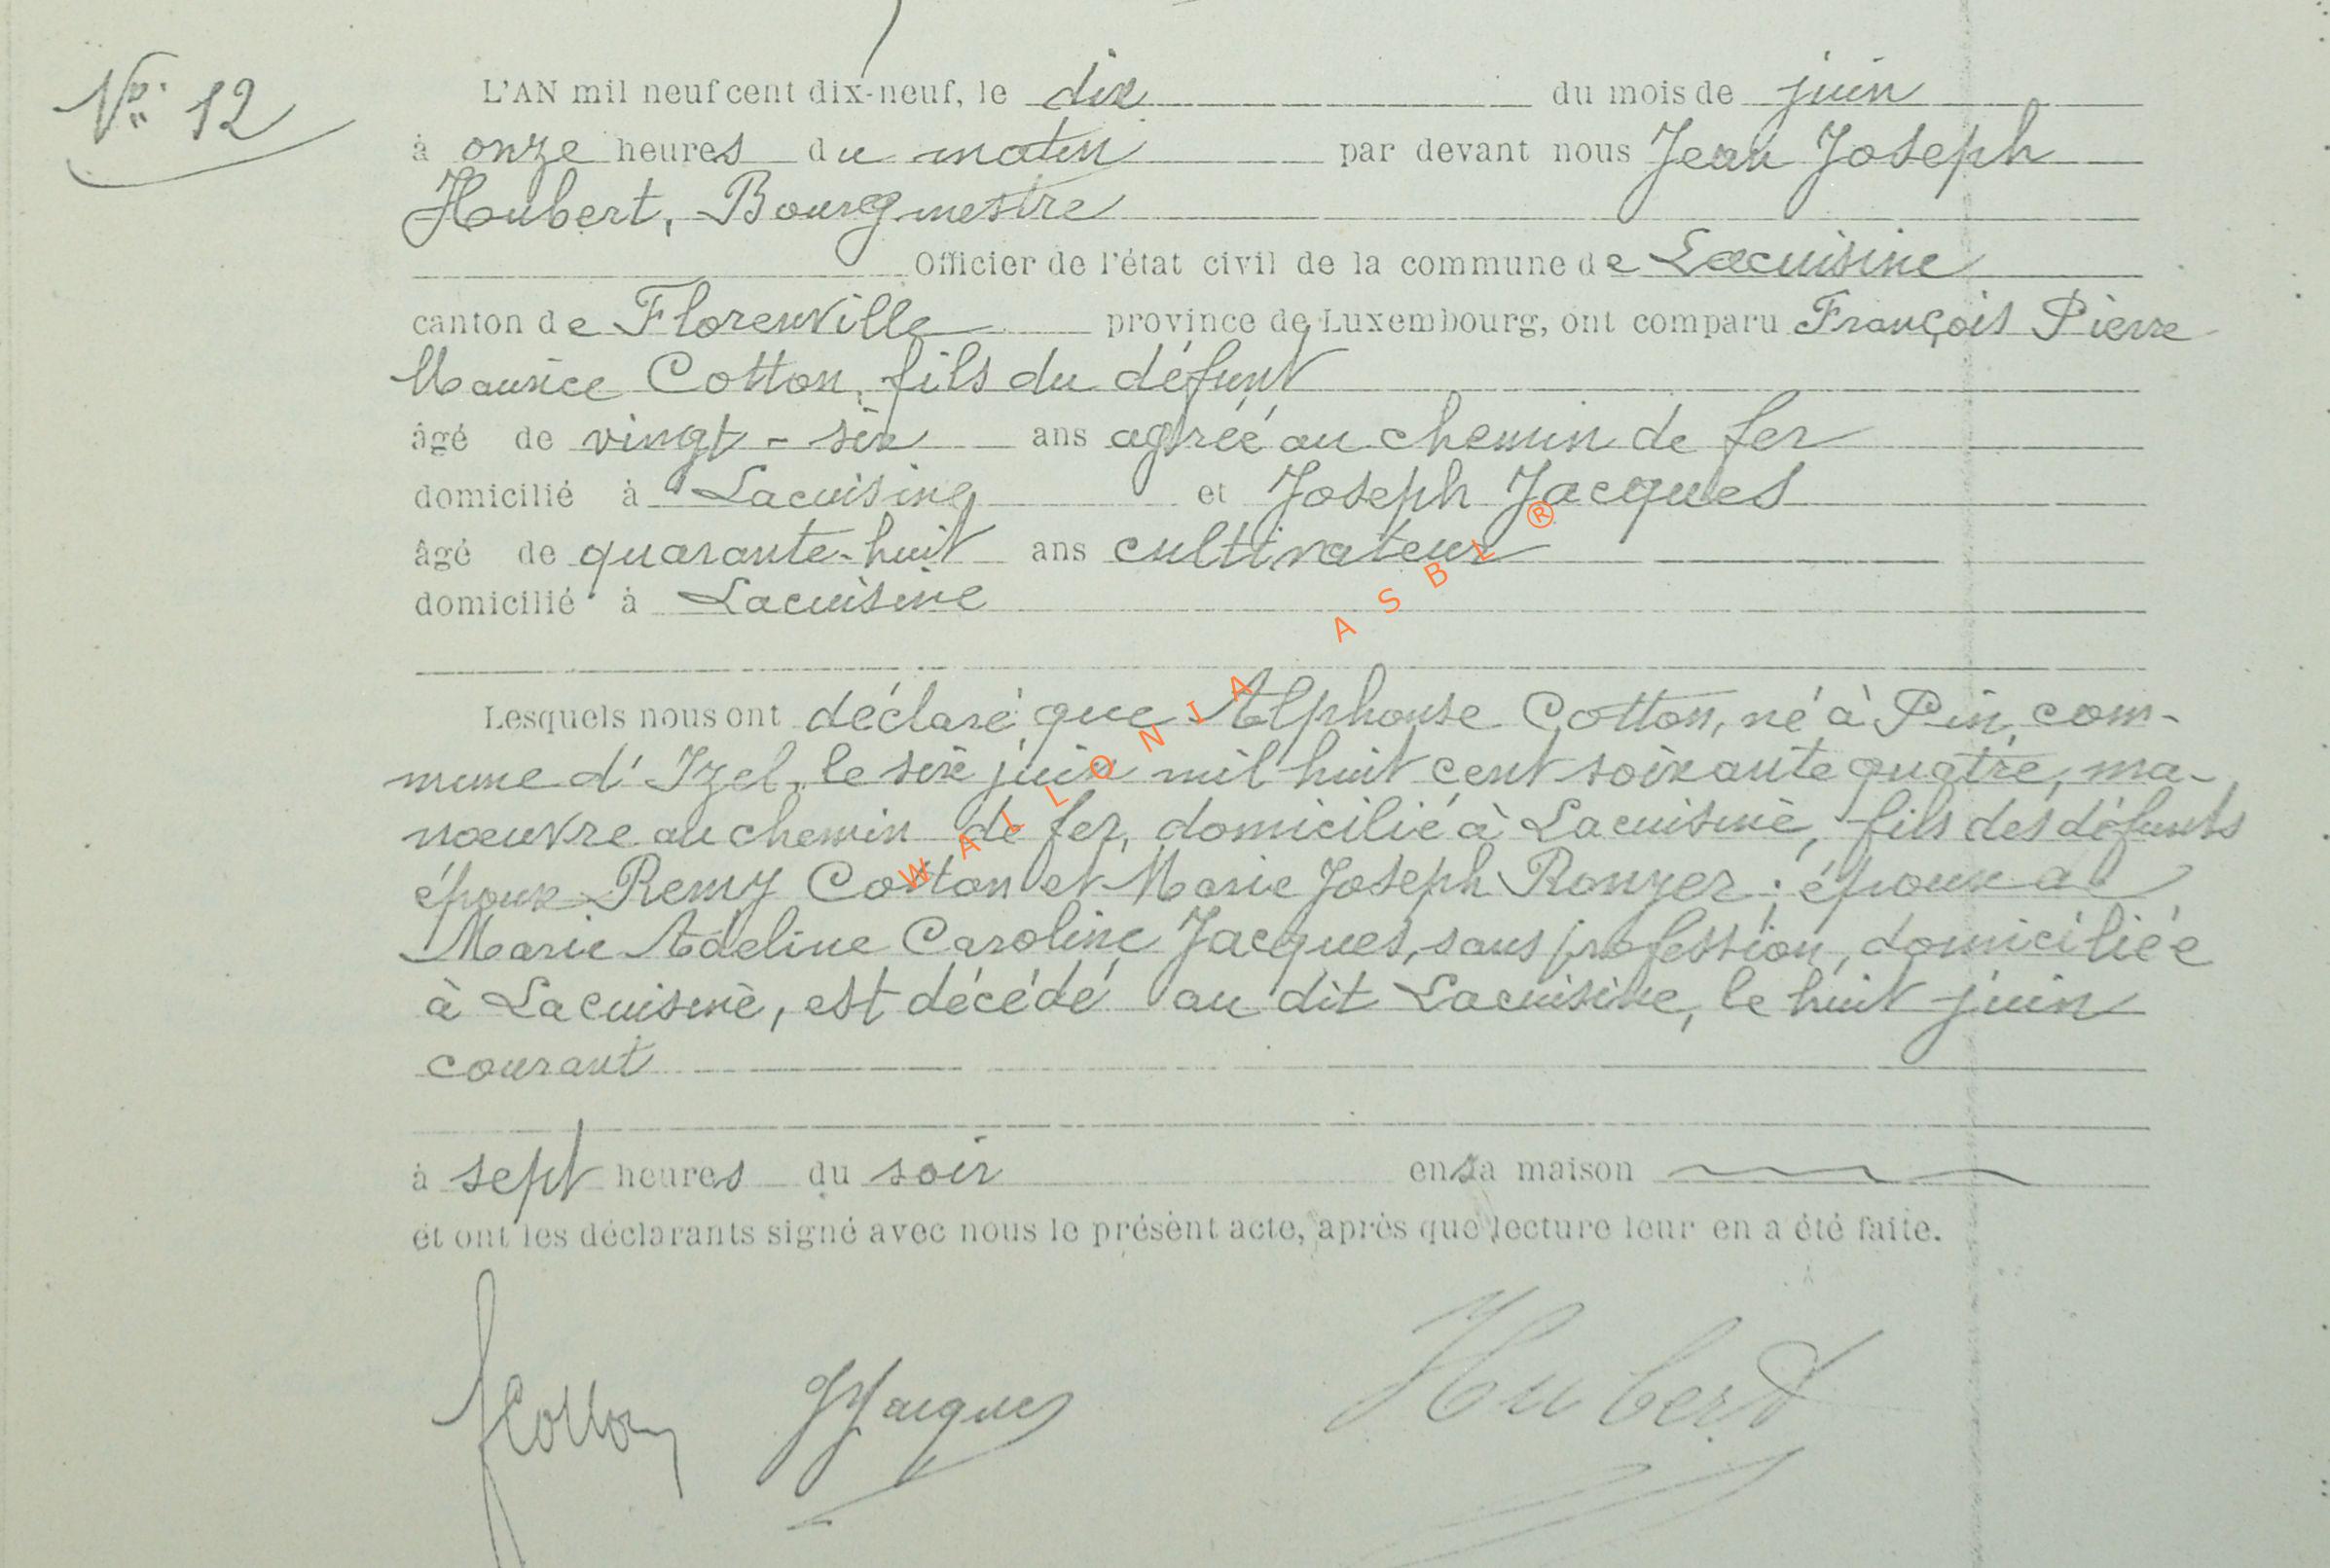 No: 12
L'AN mil neuf cent dix-neuf, le dix du mois de juin
à onze heures du matin par devant nous Jean Joseph
Hubert, Bourgmestre
Officier de l'état civil de la commune de Lacuisine
canton de Florenville province de Luxembourg, ont comparu François Pierre
Maurice Cotton, fils du défunt
âgé de vingt-six ans agréé au chemin de fer
domicilié à Lacuisine et Joseph Jacques
âgé de quarante-huit ans cultivateur
domicilié à Lacuisine
Lesquels nous ont déclaré que Alphonse Cotton, né à Pin, com-
mune d'Izel, le six juin mil huit cent soixante quatre, ma-
nœuvre au chemin de fer, domicilié à Lacuisine, fils des défunts
époux Remy Cotton et Marie Joseph Ronyer; époux de
Marie Adeline Caroline Jacques, sans profession, domiciliée
à Lacuisine, est décédé au dit Lacuisine, le huit juin
courant
à sept heures du soir en sa maison
et ont les déclarants signé avec nous le présent acte, après que lecture leur en a été faite.
fCotton JJacques Hubert
WALLONIA ASBL ®